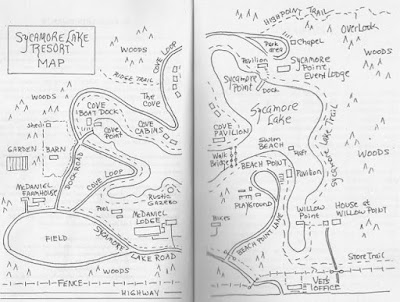 SYCAMORE LAKE
RESORT
MAP
WOODS
RIDGE TRAIL
COVE LOOP
The
Cove
WOODS
COVE
BOAT DOCK
Cove
Point
COVE
CABINS
Shed
GARDEN
BARN
DOCK ROAD
COVE LOOP
McDANIEL
FARMHOUSE
Rustic
GAZEBO
Pool
McDANIEL
LODGE
FIELD
SYCAMORE
LAKE ROAD
WOODS
FENCE
HIGHWAY
HIGHPOINT TRAIL
Overlook
Park
area
Chapel
Pavilion
Sycamore
Point
Event Lodge
WOODS
Sycamore
Point
Dock
Sycamore
Lake
Sycamore Lake Trail
COVE
PAVILION
Swim
BEACH
Walk
Bridge
BEACH POINT
Raft
Pavilion
WOODS
PLAYGROUND
Bikes
BEACH POINT LANE
WILLOW
POINT
HOUSE AT
WILLOW POINT
Store Trail
VET'S
OFFICE